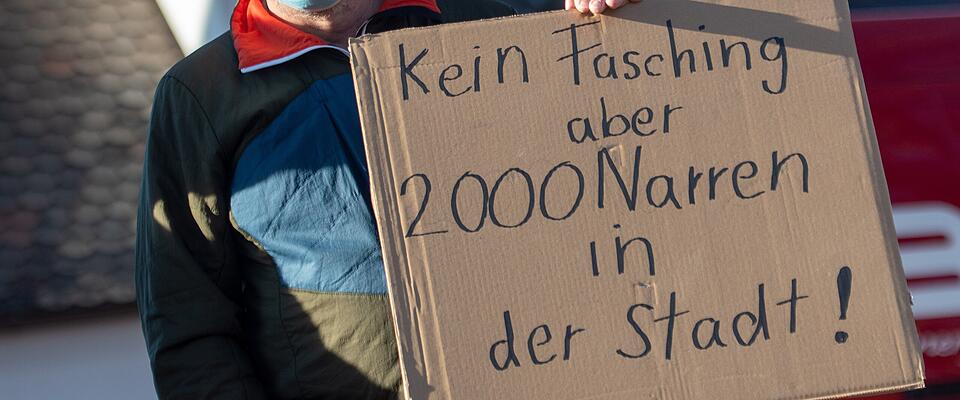 Kein Fasching
aber
2000 Narren
in
der Stadt!